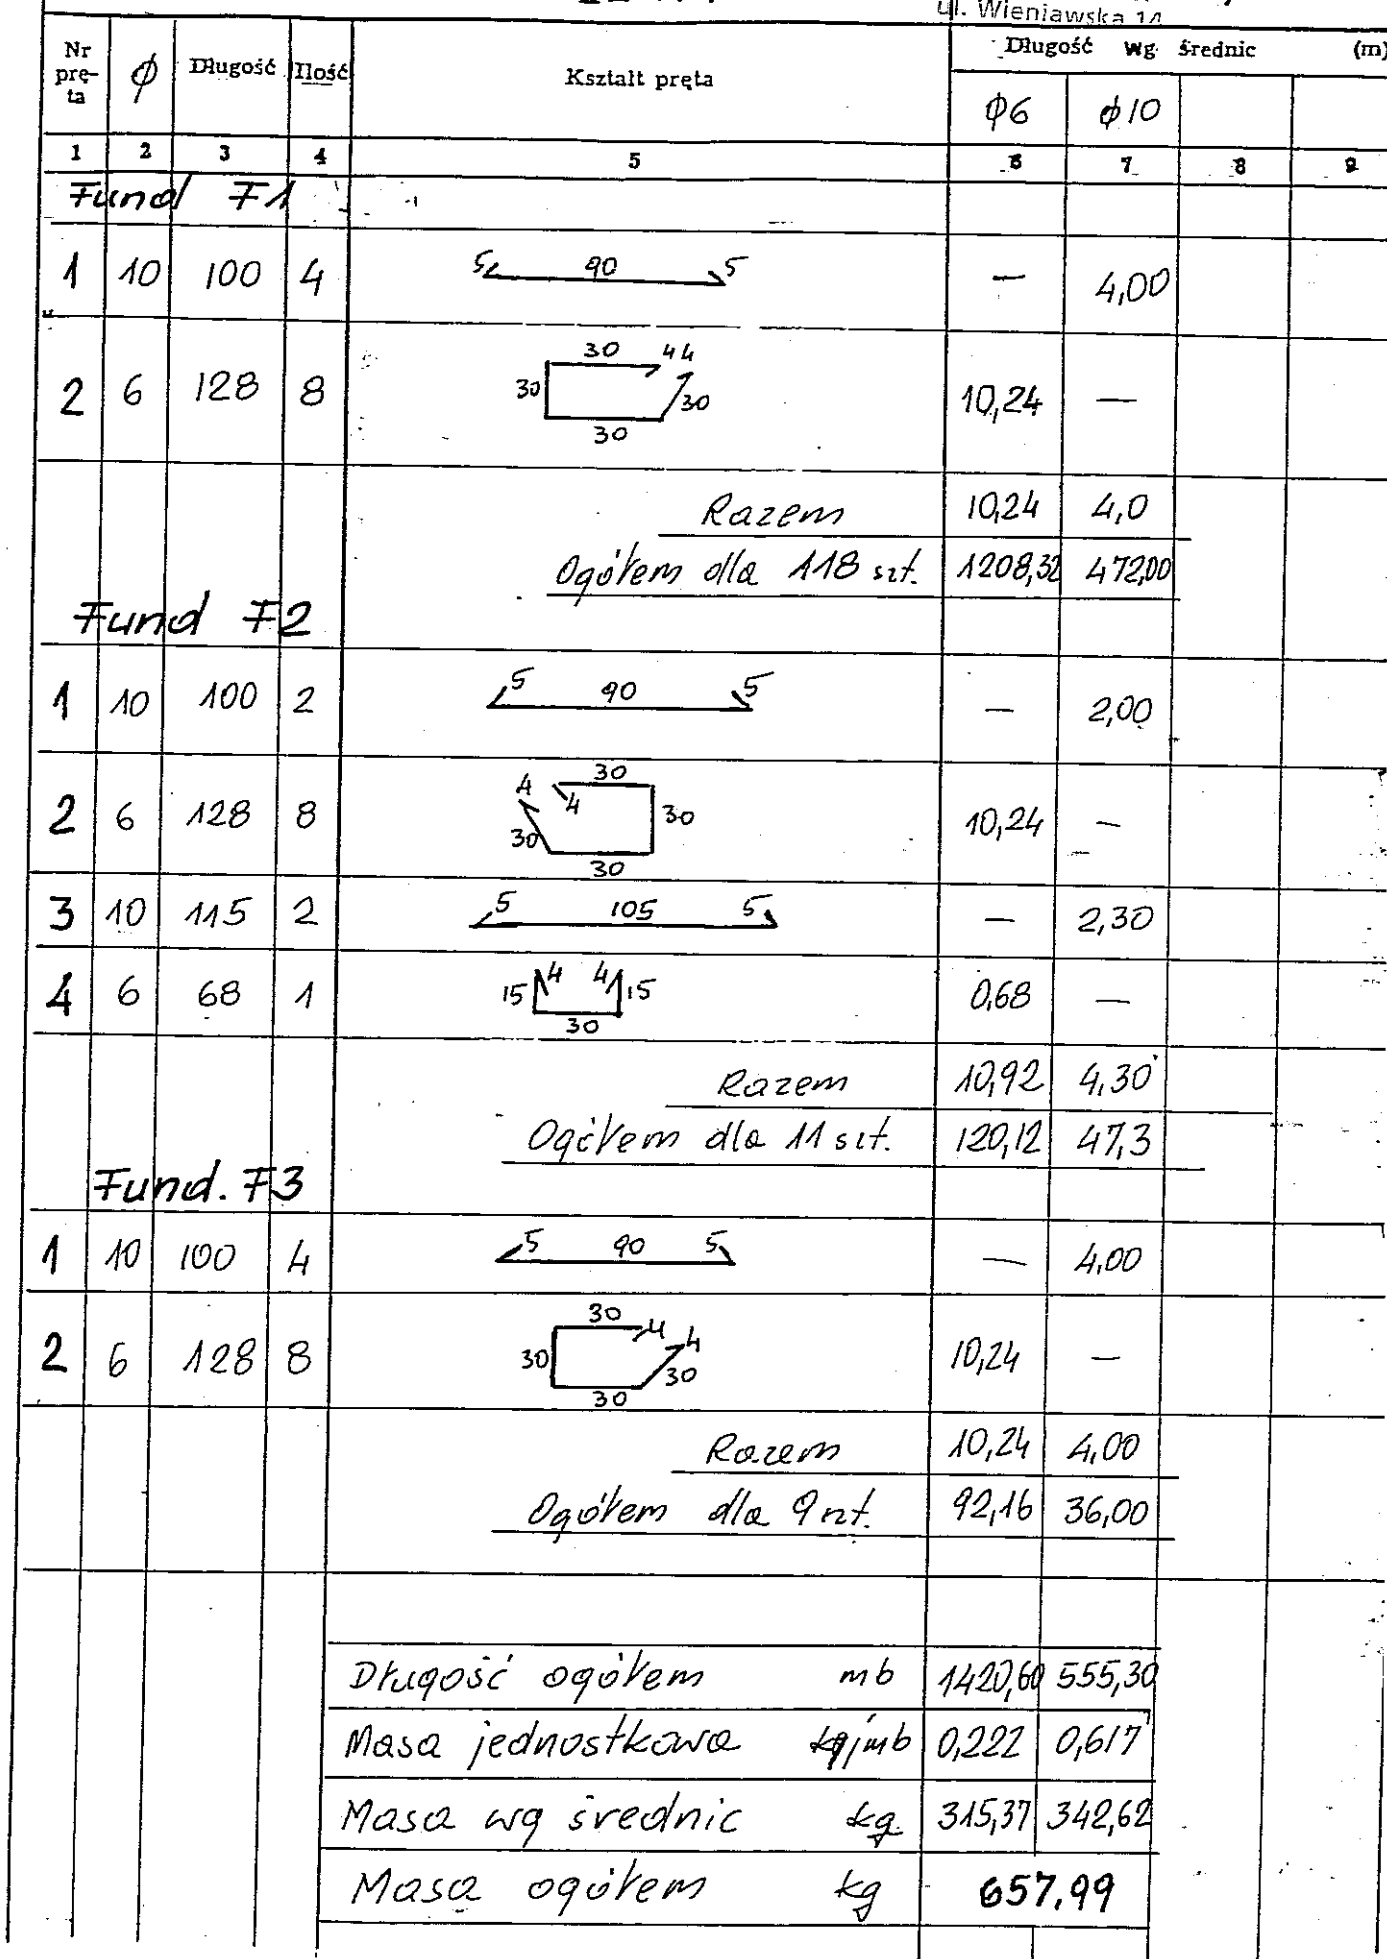 ul. Wieniawska 14
Nr prę-ta φ Długość Ilość Kształt pręta Długość wg średnic (m)
φ6 φ10
1 2 3 4 5 6 7 8 9
Fund F1
1 10 100 4 5 90 5 — 4,00
2 6 128 8 30 4 4 30 30 30 10,24 —
Razem 10,24 4,0
Ogółem dla 118 szt. 1208,32 472,00
Fund F2
1 10 100 2 5 90 5 — 2,00
2 6 128 8 4 4 30 30 30 30 10,24 —
3 10 115 2 5 105 5 — 2,30
4 6 68 1 15 4 4 15 30 0,68 —
Razem 10,92 4,30
Ogółem dla 11 szt. 120,12 47,3
Fund. F3
1 10 100 4 5 90 5 — 4,00
2 6 128 8 30 4 4 30 30 30 10,24 —
Razem 10,24 4,00
Ogółem dla 9 szt. 92,16 36,00
Długość ogółem mb 1420,60 555,30
Masa jednostkowa kg/mb 0,222 0,617
Masa wg średnic kg 315,37 342,62
Masa ogółem kg 657,99